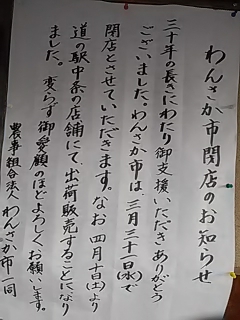 わんさか市閉店のお知らせ
三十年の長きにわたり御支援いただきありがとう
ございました。わんさか市は、三月三十一日(水)で
閉店とさせていただきます。なお四月十日(土)より
道の駅中条の店舗にて、出荷販売することになり
ました。変らず御愛顧のほどよろしくお願いします。
農事組合法人わんさか市一同